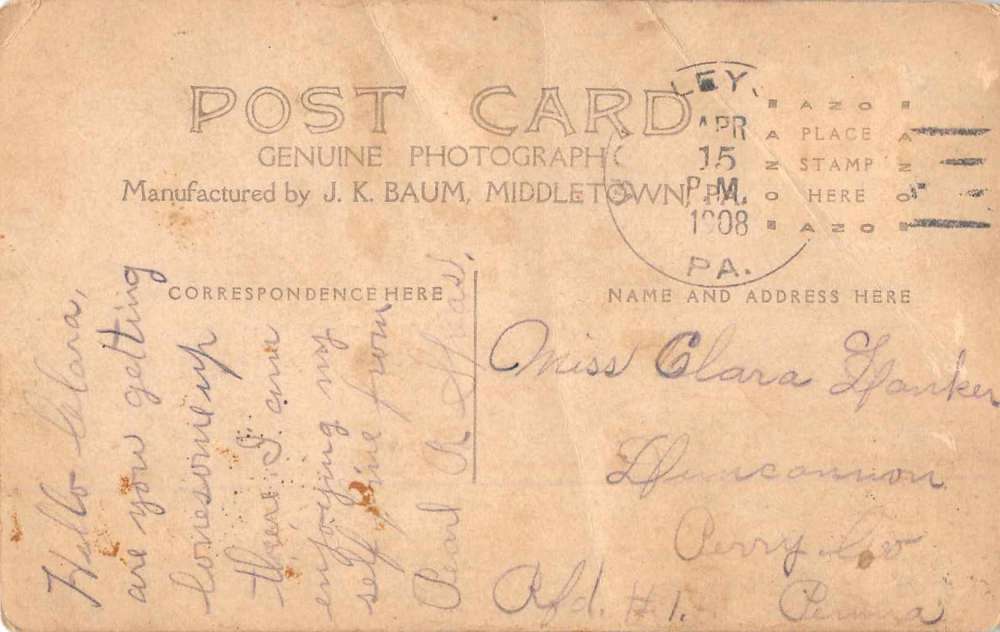 POST CARD
GENUINE PHOTOGRAPH
Manufactured by J. K. BAUM, MIDDLETOWN, PA.
LEY,
APR
15
P.M.
1908
PA.
AZO
PLACE
STAMP
HERE
AZO
AZO
AZO
CORRESPONDENCE HERE
Hello Clara,
are you getting
lonesome up
there I am
enjoying my
self fine from
Pearl R
NAME AND ADDRESS HERE
Miss Clara
Duncannon
Perry Co
Rfd. #1. Penna